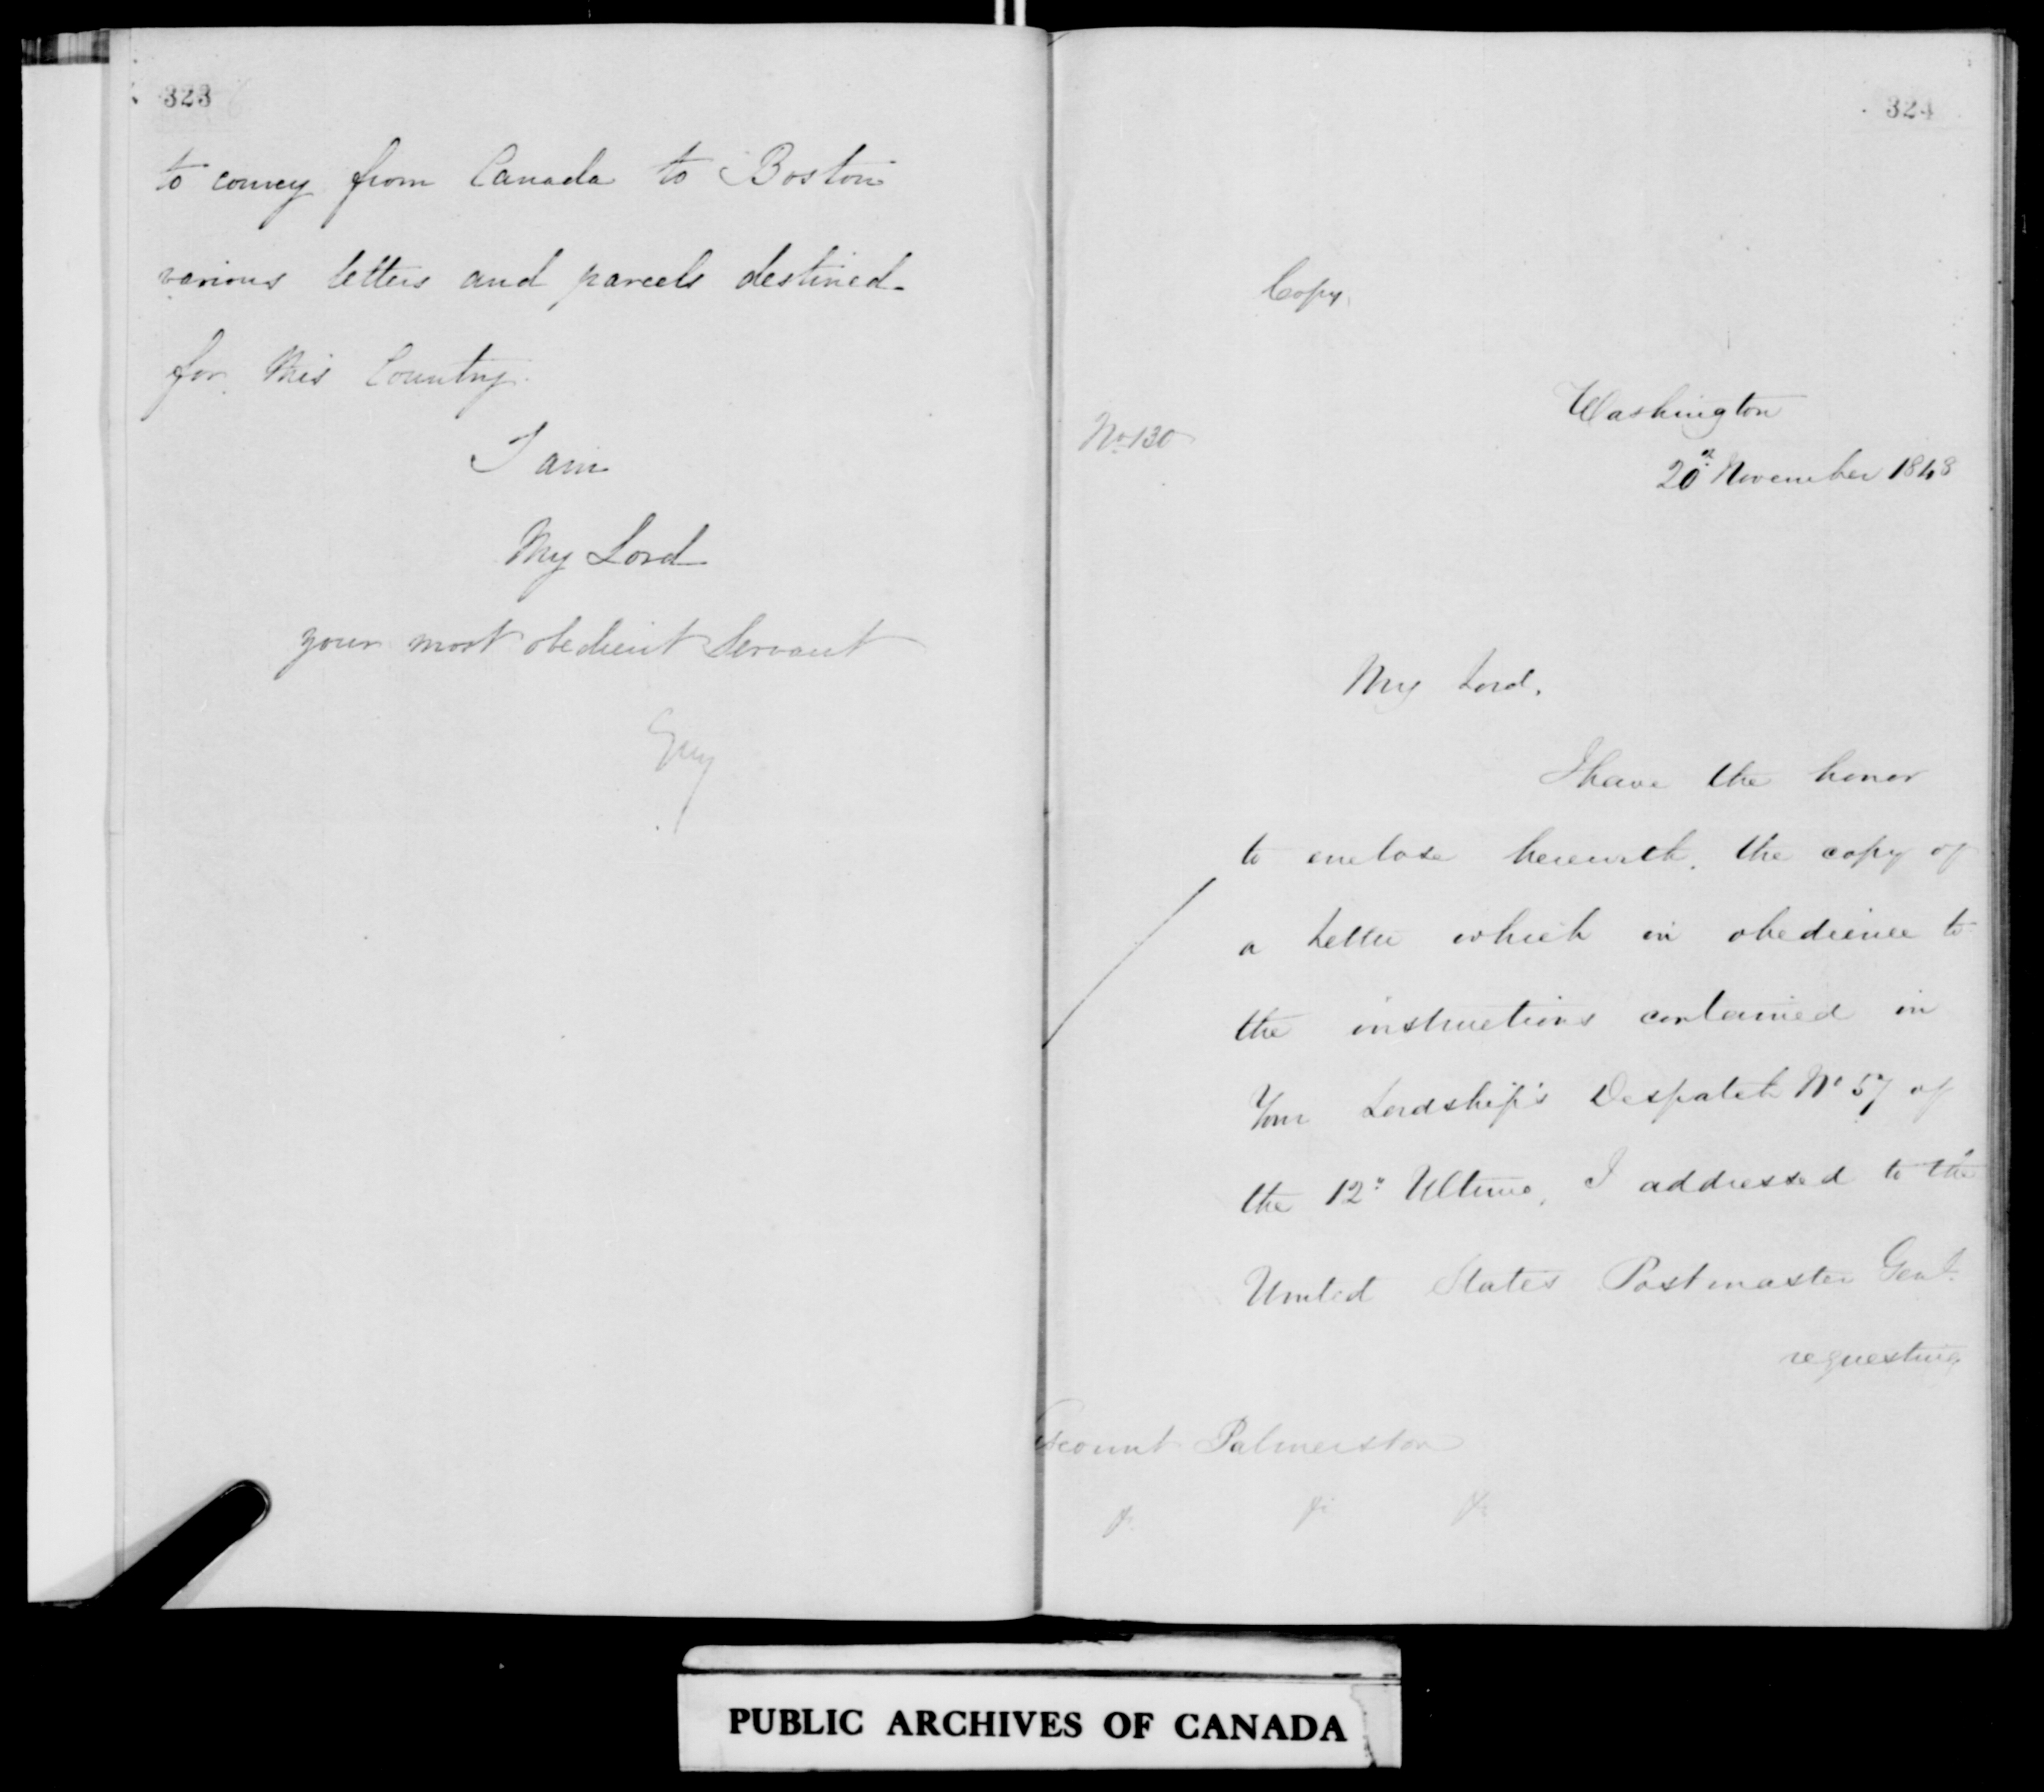 323
to convey from Canada to Boston
various letters and parcels destined
for this Country.
I am
My Lord
your most obedient Servant
Grey
324
Copy.
Washington
No 130
20th November 1848
My Lord,
I have the honor
to enclose herewith, the copy of
a Letter which in obedience to
the instructions contained in
Your Lordship's Despatch No 57 of
the 12th Ultimo, I addressed to the
United States Postmaster Genl.
requesting
Viscount Palmerston
&c &c &c
PUBLIC ARCHIVES OF CANADA